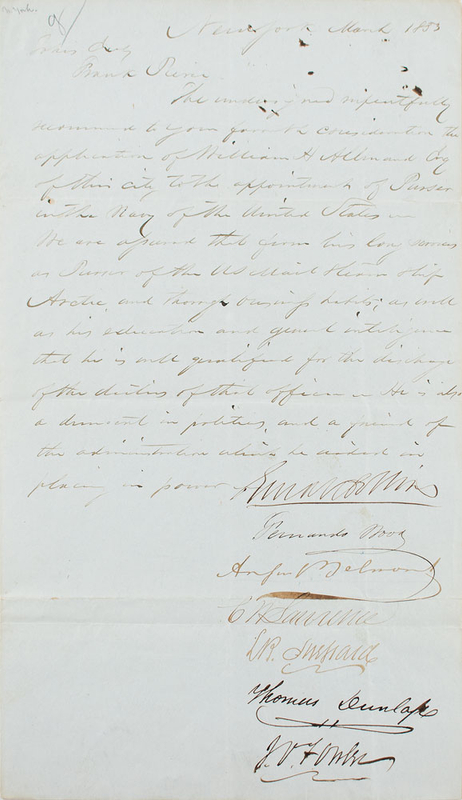 New York March 1853
Frank Pierce
The undersigned respectfully
recommend to your favorable consideration the
application of William H Allen and Esq
of this city to the appointment of Purser
in the Navy of the United States
We are assured that from his long services
as Purser of the US Mail Steam Ship
Arctic, and thorough business habits, as well
as his education and general intelligence
that he is well qualified for the discharge
of the duties of that office. He is also
a democrat in politics, and a friend of
the administration which he aided in
placing in power
Fernando Wood
August Belmont
C W Lawrence
Thomas Dunlap